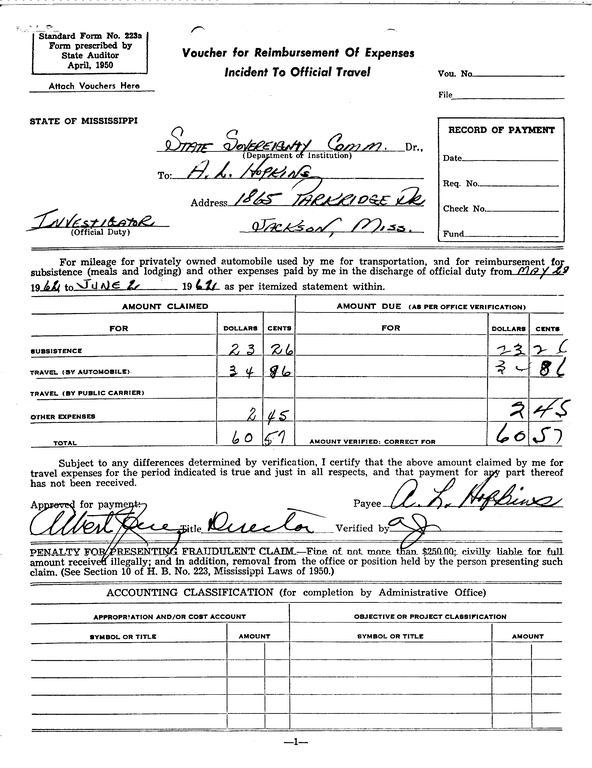 Standard Form No. 223a
Form prescribed by
State Auditor
April, 1950
Attach Vouchers Here
Voucher for Reimbursement Of Expenses
Incident To Official Travel
Vou. No.
File
STATE OF MISSISSIPPI
RECORD OF PAYMENT
Date
Req. No.
Check No.
Fund
STATE SOVEREIGNTY COMM. Dr.,
(Department or Institution)
To: A. L. HOPKINS
Address 1865 PARKRIDGE DR
INVESTIGATOR
(Official Duty)
JACKSON, MISS.
For mileage for privately owned automobile used by me for transportation, and for reimbursement for
subsistence (meals and lodging) and other expenses paid by me in the discharge of official duty from MAY 29
1962 to JUNE 2 1962 as per itemized statement within.
AMOUNT CLAIMED AMOUNT DUE (AS PER OFFICE VERIFICATION)
FOR DOLLARS CENTS FOR DOLLARS CENTS
SUBSISTENCE 23 26 23 26
TRAVEL (BY AUTOMOBILE) 34 86 34 86
TRAVEL (BY PUBLIC CARRIER)
OTHER EXPENSES 2 45 2 45
TOTAL 60 57 AMOUNT VERIFIED: CORRECT FOR 60 57
Subject to any differences determined by verification, I certify that the above amount claimed by me for
travel expenses for the period indicated is true and just in all respects, and that payment for any part thereof
has not been received.
Approved for payment: Payee A. L. Hopkins
Albert Title Director Verified by
PENALTY FOR PRESENTING FRAUDULENT CLAIM.—Fine of not more than $250.00; civilly liable for full
amount received illegally; and in addition, removal from the office or position held by the person presenting such
claim. (See Section 10 of H. B. No. 223, Mississippi Laws of 1950.)
ACCOUNTING CLASSIFICATION (for completion by Administrative Office)
APPROPRIATION AND/OR COST ACCOUNT OBJECTIVE OR PROJECT CLASSIFICATION
SYMBOL OR TITLE AMOUNT SYMBOL OR TITLE AMOUNT
—1—